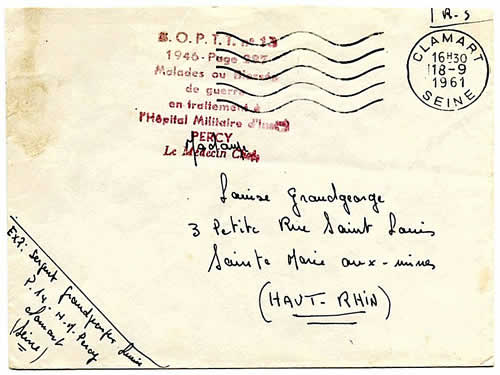 1 R-S
B.O.P.T.T. nº 13
1946-Page 297
Malades ou Blessés
de guerre
en traitement à
l'Hôpital Militaire d'Ins
PERCY
Le Médecin Chef
CLAMART
16H30
18-9
1961
SEINE
Madame
Louise Grandgeorge
3 Petite Rue Saint Louis
Sainte Marie aux-mines
(HAUT-RHIN)
EXP: Sergent Grandgeorges Louis
P. 14. H.M. Percy
Clamart
(Seine)